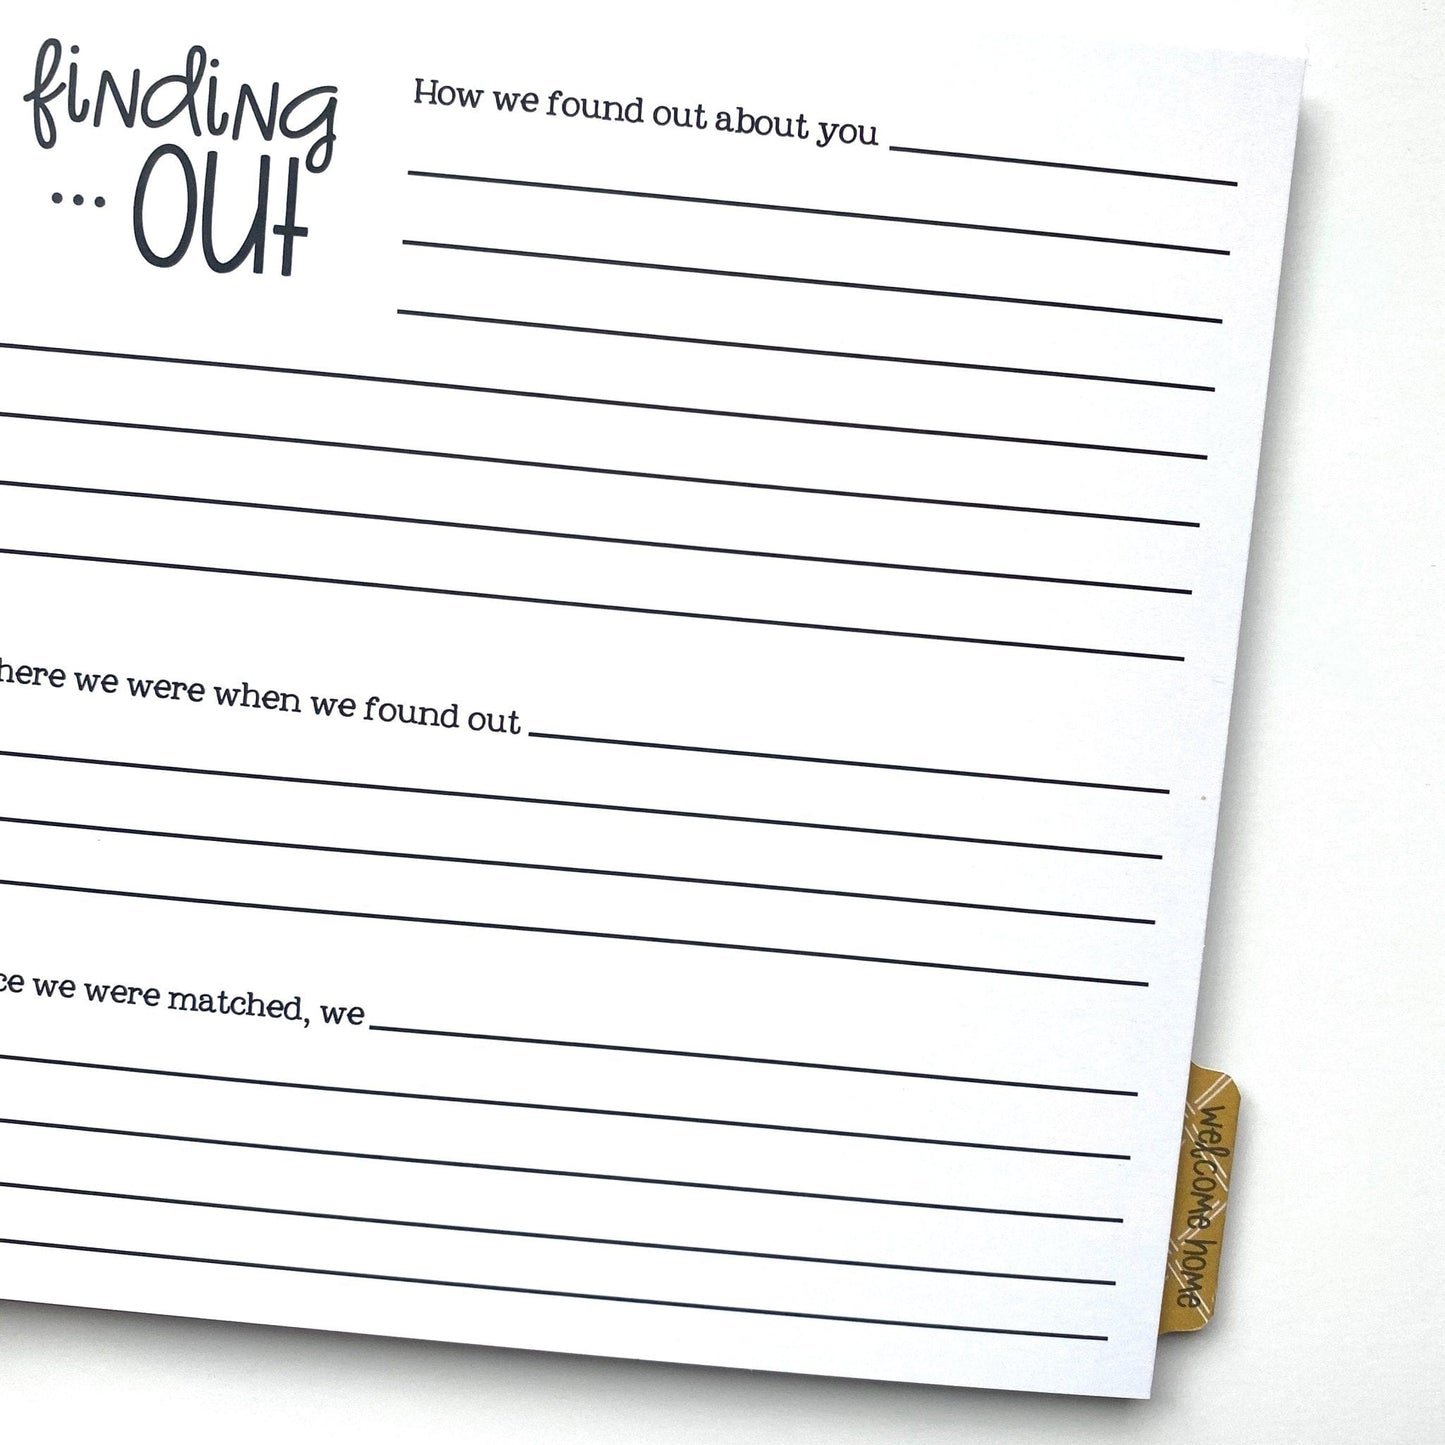 finding
... out
How we found out about you
here we were when we found out
ce we were matched, we
welcome home